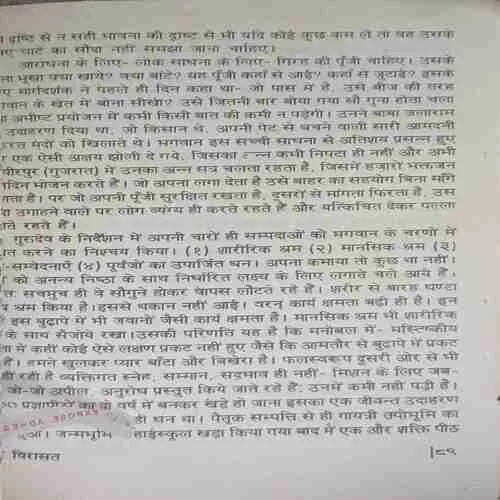 दृष्टि से न सही भावना की दृष्टि से भी यदि कोई कुछ कम ले तो वह उसके
घाटे का सौदा नहीं समझा जाना चाहिए।
आराधना के लिए- लोक साधना के लिए- गिरह की पूँजी चाहिए। उसके
भूखा क्या खाये? क्या बाँटे? यह पूँजी कहाँ से आई? कहाँ से जुटाई? इसके
मार्गदर्शक ने पहले ही दिन कहा था- जो पास में है, उसे बीज की तरह
भगवान के खेत में बोना सीखो? उसे जितनी बार बोया गया सौ गुना होता चला
अभीष्ट प्रयोजन में कभी किसी बात की कमी न पड़ेगी। उनने बाबा जलाराम
उदाहरण दिया था, जो किसान थे, अपनी पेट से बचने वाली सारी आमदनी
मंदों को खिलाते थे। भगवान इस सच्ची साधना से अतिशय प्रसन्न हुए
एक ऐसी अक्षय झोली दे गये, जिसका अन्न कभी निपटा ही नहीं और अभी
वीरपुर (गुजरात) में उनका अन्न सत्र चलता रहता है, जिसमें हजारों भक्तजन
प्रतिदिन भोजन करते हैं। जो अपना लगा देता है उसे बाहर का सहयोग बिना माँगे
जाता है। पर जो अपनी पूँजी सुरक्षित रखता है, दूसरों से मांगता फिरता है, उस
उगाहने वाले पर लोग व्यंग्य ही करते रहते हैं और यत्किंचित देकर पल्ला
रहते हैं।
गुरुदेव के निर्देशन में अपनी चारों ही सम्पदाओं को भगवान के चरणों में
करने का निश्चय किया। (१) शारीरिक श्रम (२) मानसिक श्रम (३)
भाव-सम्वेदनाएँ (४) पूर्वजों का उपार्जित धन। अपना कमाया तो कुछ था नहीं।
को अनन्य निष्ठा के साथ निर्धारित लक्ष्य के लिए लगाते चले आये हैं।
सचमुच ही वे सौगुने होकर वापस लौटते रहे हैं। शरीर से बारह घण्टा
श्रम किया है। इससे थकान नहीं आई। वरन् कार्य क्षमता बढ़ी ही है। इन
इस बुढ़ापे में भी जवानों जैसी कार्य क्षमता है। मानसिक श्रम भी शारीरिक
के साथ सँजोये रखा। उसकी परिणति यह है कि मनोबल में- मस्तिष्कीय
में कहीं कोई ऐसे लक्षण प्रकट नहीं हुए जैसे कि आमतौर से बुढ़ापे में प्रकट
हैं। हमने खुलकर प्यार बाँटा और बिखेरा है। फलस्वरूप दूसरी ओर से भी
ही रही है व्यक्तिगत स्नेह, सम्मान, सद्भाव ही नहीं- मिशन के लिए जब-
जो-जो अपील, अनुरोध प्रस्तुत किये जाते रहे हैं; उनमें कमी नहीं पड़ी है।
प्रज्ञापीठों का दो वर्ष में बनकर खड़े हो जाना इसका एक जीवन्त उदाहरण
ही धन था। पैतृक सम्पत्ति से ही गायत्री तपोभूमि का
हुआ। जन्मभूमि हाईस्कूल खड़ा किया गया बाद में एक और शक्ति पीठ
विरासत
|८९